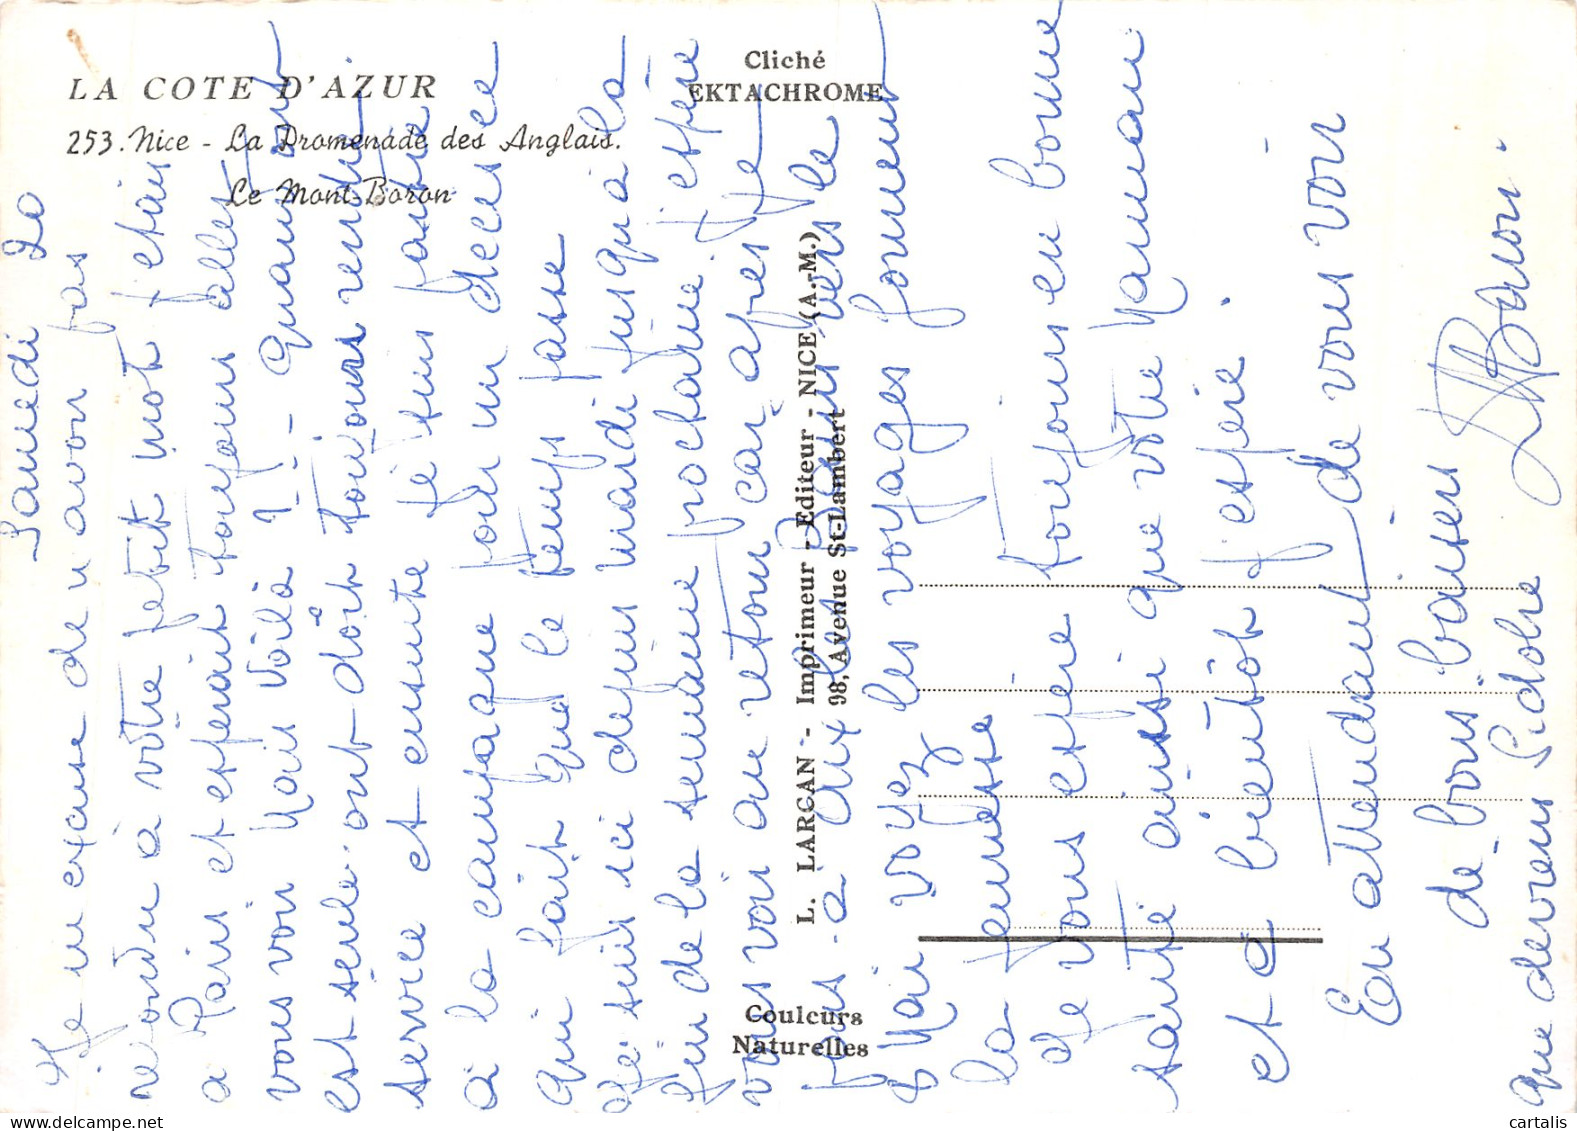 LA COTE D'AZUR
253. Nice - La Promenade des Anglais.
Le Mont-Boron
Cliché
EKTACHROME
L. LARCAN - Imprimeur - Editeur - NICE (A.-M.)
98, Avenue St-Lambert
Couleurs
Naturelles
Samedi 20
Je m'excuse de n'avoir pas
répondu à votre petit mot j'étais
à Paris et espérait toujours aller
vous voir Mais voilà !! - Quand on
est seule ont dôit toujours rendre
service et ensuite je suis partie
à la campagne pour un décès ce
qui fait que le temps passe
Je suis ici depuis mardi jusqu'à la
fin de la semaine prochaine j'espère
vous voir au retour car après je
pars à aux les vers le
8 Mai voyez les voyages forment
la jeunesse
Je vous espère toujours en bonne
santé ainsi que votre Maman
et à bientôt j'espère.
En attendant de vous voir
de bons baisers
que deviens Isidore